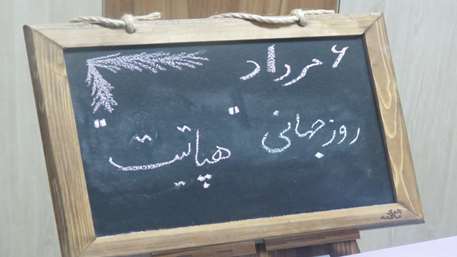 ۶ مرداد
روز جهانی "هپاتیت"